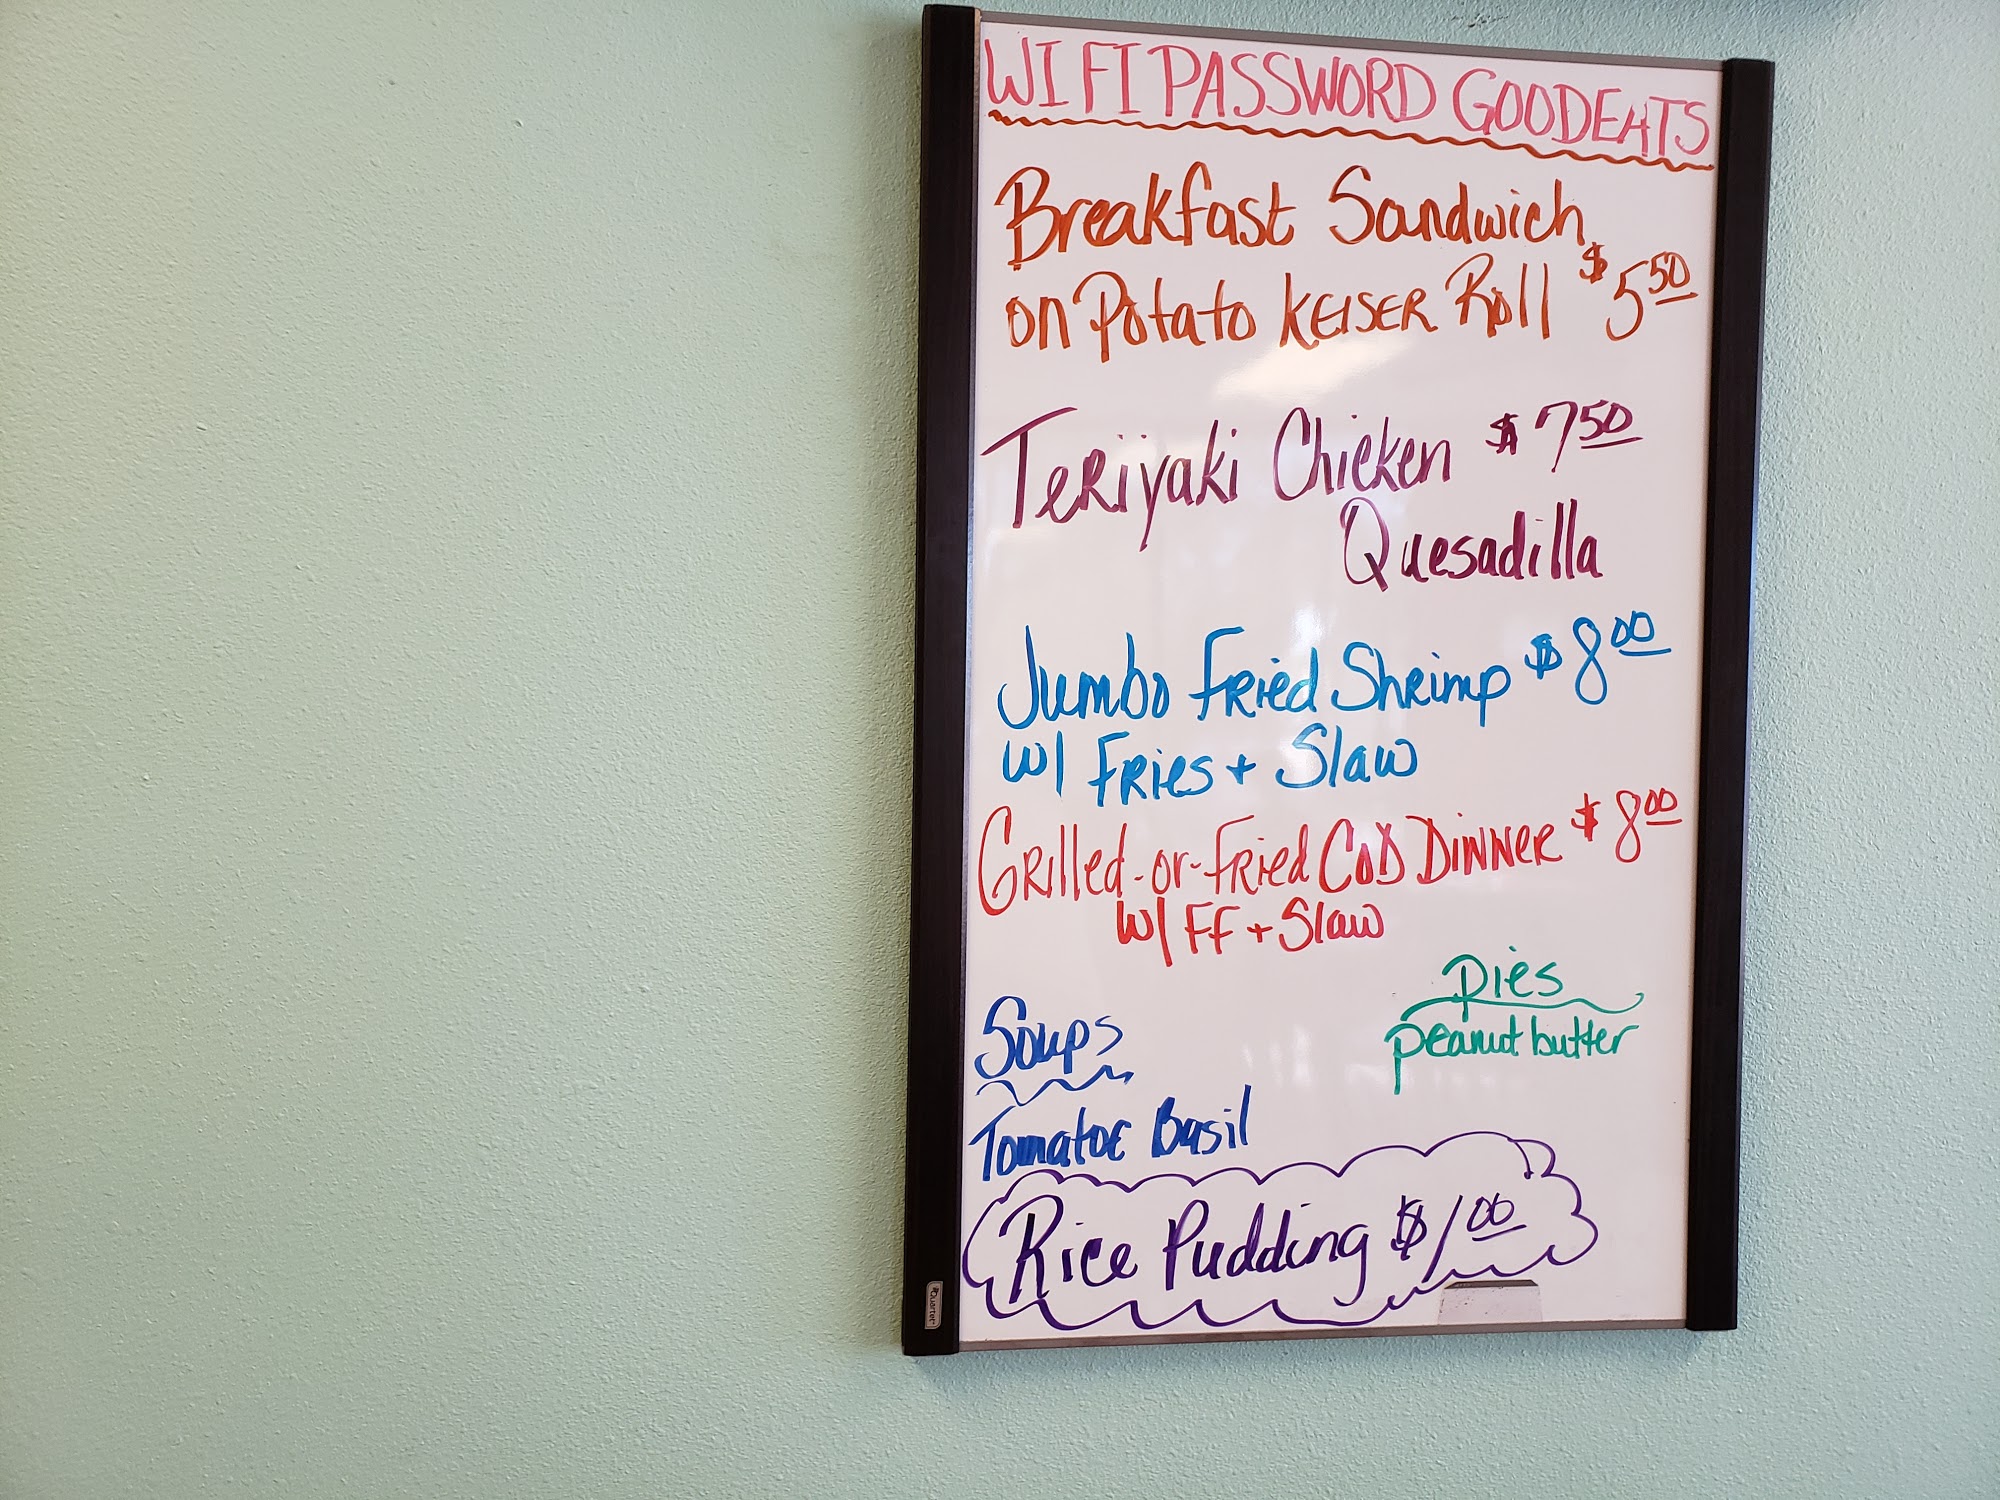 WIFI PASSWORD GOODEATS
Breakfast Sandwich
on Potato KEISER Roll $5.50
Teriyaki Chicken $7.50
Quesadilla
Jumbo Fried Shrimp $8.00
w/ Fries + Slaw
Grilled-or-Fried COD DINNER $8.00
w/ FF + Slaw
Pies
peanut butter
Soups
Tomatoe Basil
Rice Pudding $1.00
Quartet